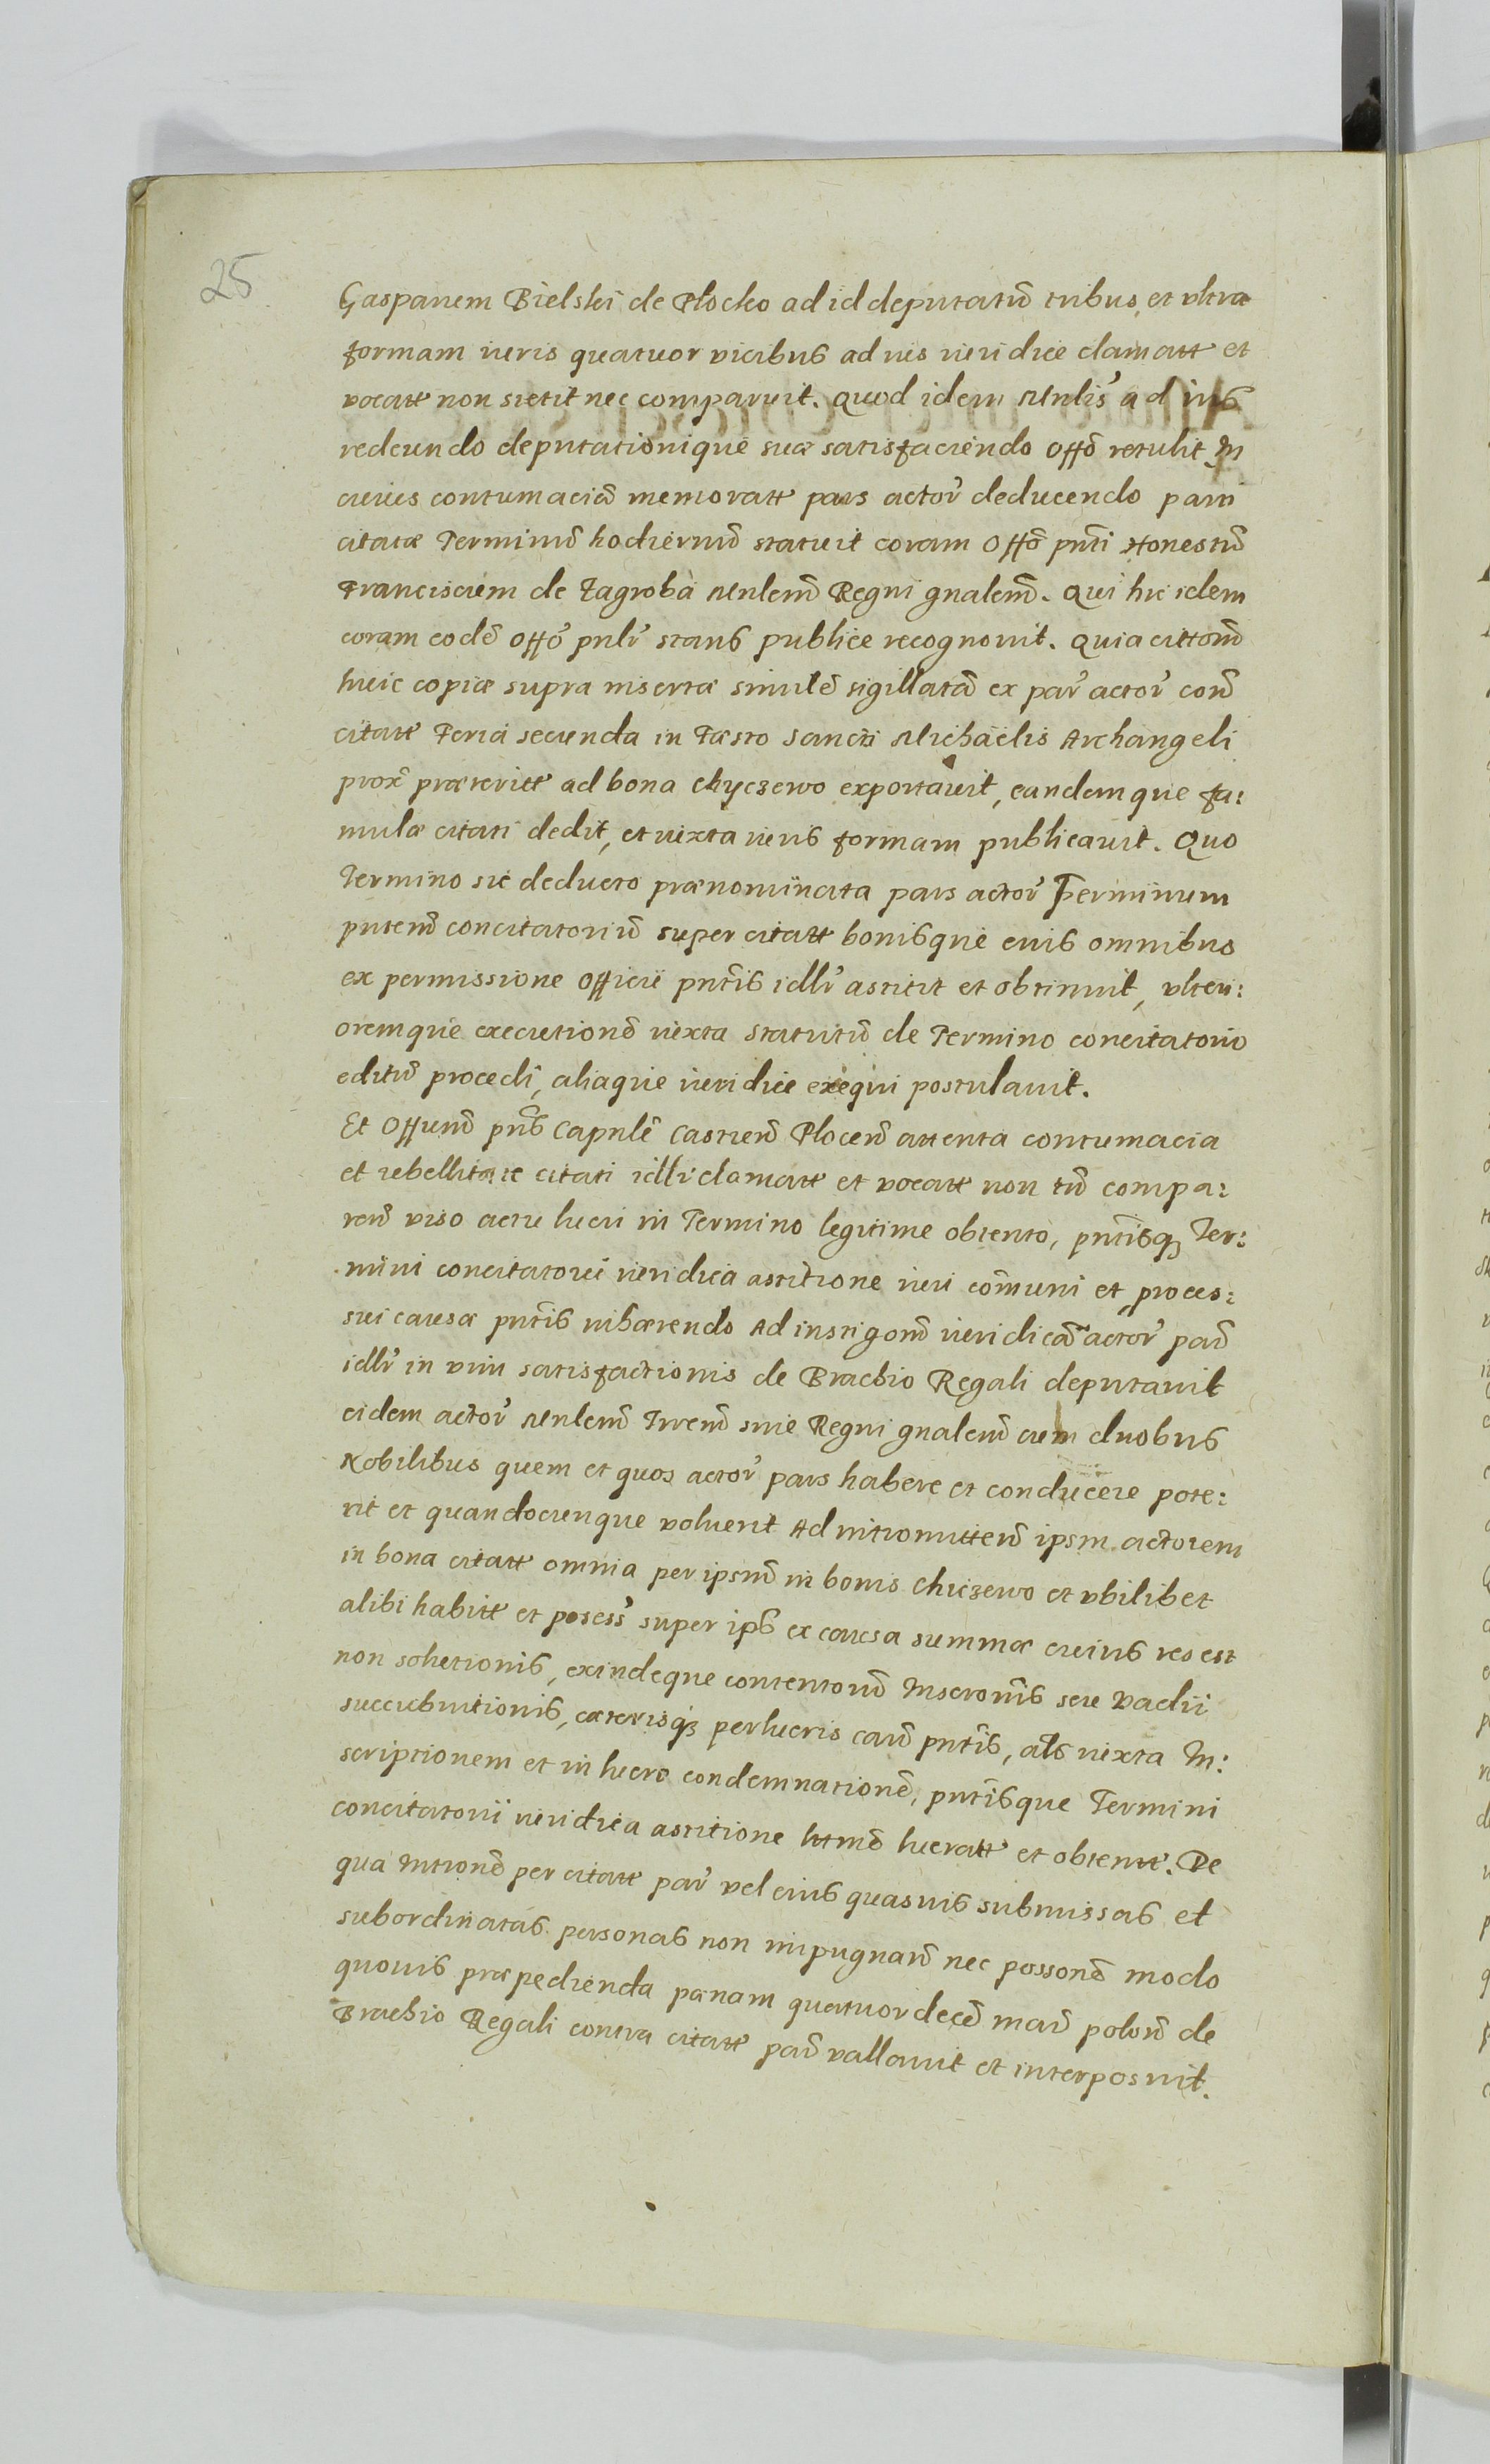 25
Gasparem Bielski de Plocko ad id deputatū tribus, et vltra
formam iuris quatuor vicibus ad ius iuridice clamatt et
vocatt non stetit nec comparuit. Quod idem Mnlis ad ius
redeundo deputationique suæ satisfaciendo Offō retulit In
cuius contumaciā memoratt pars actor̄ deducendo parti
citatæ Terminū hodiernū statuit coram Offō pn̄ti Honestū
Franciscum de Zagroba Mnlem̄ Regni gnalem̄. Qui hic idem
coram eodē Offō pnlr̄ stans publice recognouit. Quia cittōnē
huic copiæ supra insertæ similē sigillatā ex par̄ actor̄ con̄
citatt Feria secunda in Fæsto Sancti Michaëlis Archangeli
prox̄ præteritt ad bona Chyczewo exportauit, eandemque fa:
mulæ citati dedit, et iuxta iuris formam publicauit. Quo
Termino sic deducto prænominata pars actor̄ Terminum
pntem̄ concitatoriū super citatt bonisque eius omnibus
ex permissione Officii pn̄tis idlr̄ astitit et obtinuit, vlteri:
oremque executionē iuxta Statutū de Termino concitatorio
editū procedi, aliaque iuridice exequi postulauit.
Et Offium̄ pn̄s Capnlē Castren̄ Plocen̄ attenta contumacia
et rebellitate citati idlr̄ clamatt et vocatt non tū compa:
ren̄ viso actu lucri in Termino legitime obtento, pn̄tisq3 Ter:
mini concitatorii iuridica astitione iuri com̄uni et proces:
sui causæ pn̄tis inhærendo Ad instigōnē iuridicā actor̄ par̄
idlr̄ in vim satisfactionis de Brachio Regali deputauit
eidem actor̄ Mnlem̄ Trrem̄ siue Regni gnalem̄ cum duobus
Nobilibus quem et quos actor̄ pars habere et conducere pote:
rit et quandocunque voluerit Ad intromitten̄ ipsm̄ actorem
in bona citatt omnia per ipsm̄ in bonis Chiczewo et vbilibet
alibi habitt et posess̄ super ips̄ ex causa summæ cuius res est
non solutionis, exindeque contentorū Inscrōnis seu vadii
succubuitionis, cæterisq3 perlucris caus̄ pn̄tis, als iuxta In:
scriptionem et in lucro condemnationē, pn̄tisque Termini
concitatorii iuridica astitione lttmē lucratt et obtentt. De
qua Intrōnē per citatt par̄ vel eius quasuis submissas et
subordinatas personas non impugnan̄ nec possonē modo
quouis præpedienda pœnam quatuordecē mar̄ polon̄ de
Brachio Regali contra citatt par̄ vallauit et interposuit.